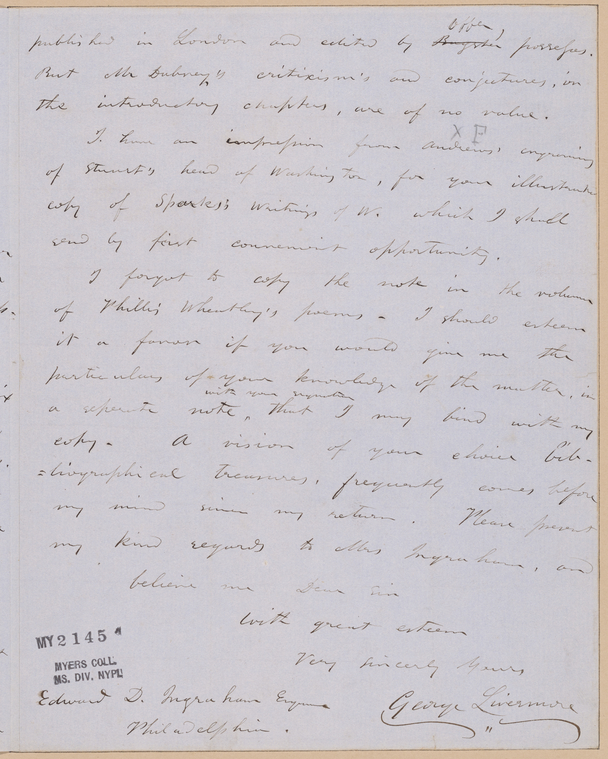 published in London and edited by Offer, possesses.
But Mr Dabney's critixism's and conjectures, on
the introductory chapters, are of no value.
X P
I have an impression from Andrews' engraving
of Stuart's head of Washington, for your illustrated
copy of Sparks's Writings of W. which I shall
send by first convenient opportunity.
I forgot to copy the note in the volume
of Phillis Wheatley's poems - I should esteem
it a favour if you would give me the
particulars of your knowledge of the matter, in
with your signature
a seperate note, that I may bind with my
copy - A vision of your choice bib-
=liographical treasures, frequently comes before
my mind since my return. Please present
my kind regards to Mrs Ingraham, and
believe me Dear Sir
With great esteem
Very sincerely Yours
George Livermore
MY 2145
MYERS COLL.
MS. DIV. NYPL
Edward D. Ingraham Esquire
Philadelphia.